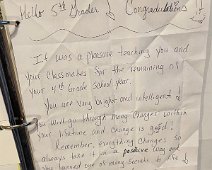 Hello 5th Grader! Congradulations!
It was a pleasure teaching you and
your classmates for the remaining of
your 4th Grade school year.
You are very bright and intelligent
go through many changes within
your lifetime and change is good!
Remember, everything changes
always take it in a positive way and